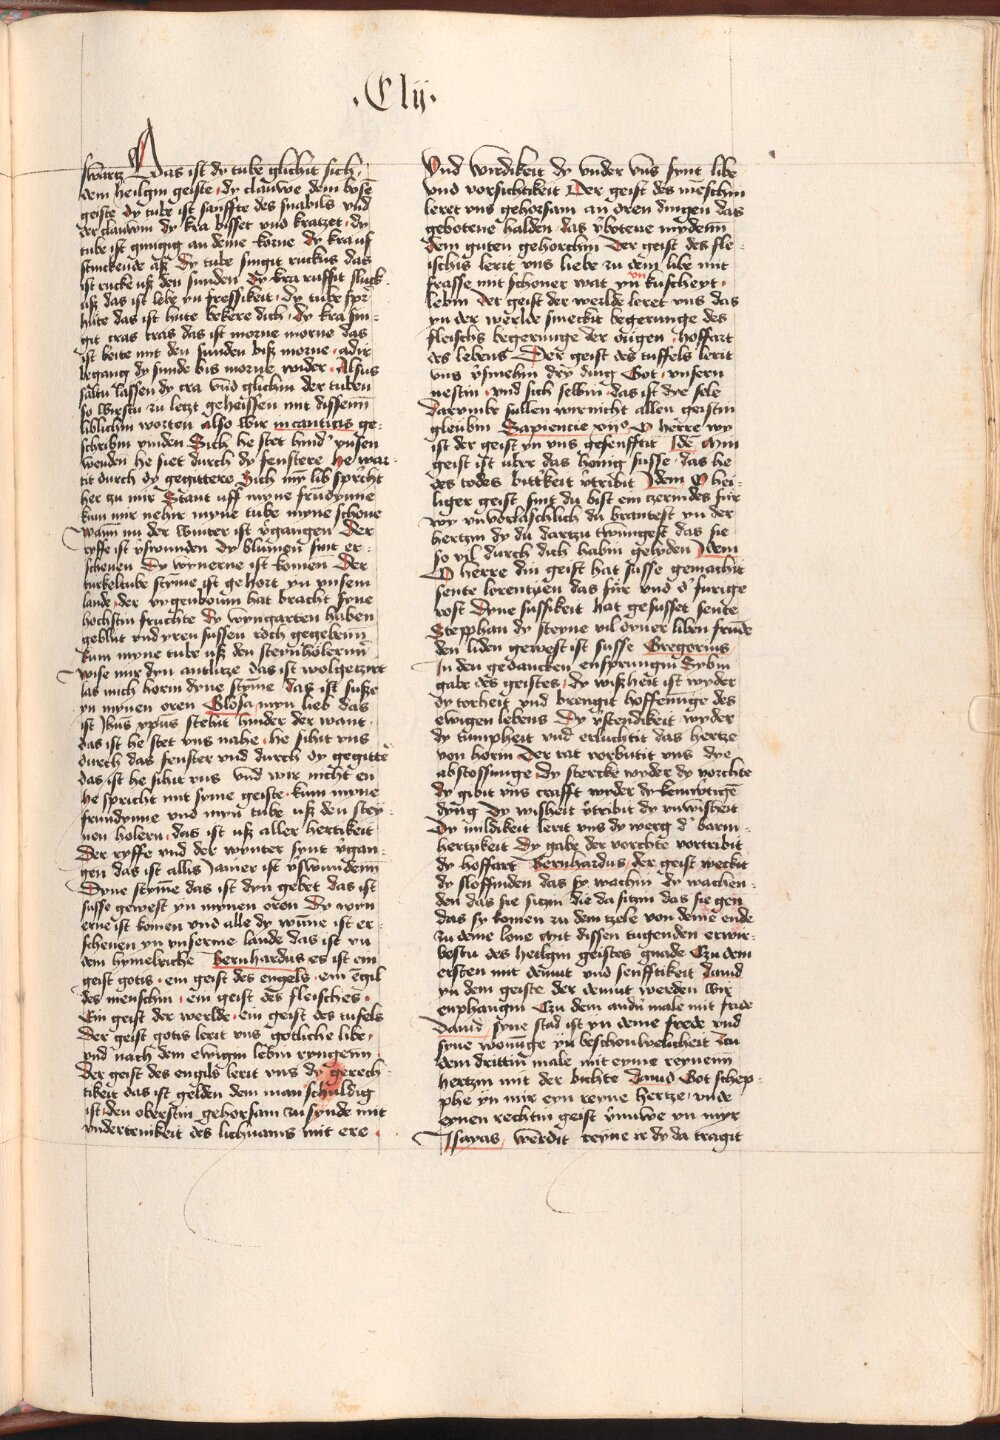 ·Clij·
swartz Das ist dy tube glichit sich
dem heilgin geiste · dy clauwe dem bose
geiste Dy tube ist sanffte des snabils vnd
der clauwin dy kra bisset vnd kratzet · dy
tube ist gnugig an deme korne Dy kra uf
stinckende aß Dy tube singit ruckus das
ist rucke uß den sunden Dy kra ruffit sluck
uß das ist lebe yn fressikeit · dy tube spr
hute das ist hute bekere dich · dy kra sin-
git cras cras das ist morne morne das
ist beite mit den sunden biß morne · adir
begang dy sunde bis morne wider · Alsus
saltu lassen dy cra vnd glichin der tuben
so wirstu zu letzt geheissen mit dissenn
liblichin worten also wir in canticis ge-
schribin vinden Sich he stet hind' vnsen
wenden he siet durch dy fenstere he war-
tit durch dy gegittere Sich myn lib spricht
her zu mir Stant uff myne frundynne
kum mir neher myne tube myne schone
wann nu der winter ist v'gangen Der
ryffe ist v'swunden Dy blumen sint er-
schenen Dy wynerne ist komen Der
turkeltube stymme ist gehort yn vnsem
lande · der vygenboum hat bracht syne
hochstin fruchte Dy wyngarten haben
geblut vnd yren sussen roch gegebenn
kum myne tube uß den steynholernn
wise mir dyn antlitze das ist wolgetziret
las mich horin dyne stymme das ist susse
yn mynen oren Glosa myn lieb das
ist Jhus xpus stehit hinder der want
das ist he stet vns nahe · he sihit vns
durch das fenster vnd durch dy gegitte'
das ist he sihit vns vnd wir nicht en
he spricht mit syme geiste · kum myne
frundynne vnd myn tube uß den stey-
nen holern · das ist uß aller hertikeit
Der ryffe vnd der wynter synt v'gan-
gen das ist allis Jamer ist v'swundenn
Dyne stymme das ist dyn gebet das ist
susse gewest yn mynen oren Dy wyn
erne ist komen vnd alle dy wunne ist er-
schenen yn vnserme lande das ist yn
dem hymelriche Bernhardus es ist ein
geist gotis · ein geist des engels · ein engil
des menschin · ein geist des fleisches ·
Ein geist der werlde · ein geist des tufels
Der geist gotis lerit vns gotliche libe ·
vnd nach dem ewigin lebin ryngenn
Der geist des engils lerit vns dy gerech-
tikeit das ist gelden dem man schuldig
ist · den oberstin gehorsam zu synde mit
vndertenikeit des lichnams mit ere ·
Vnd wirdikeit dy vnder vns synt libe
vnd vorsichtikeit Der geist des menschin
leret vns gehorsam an oren dingen das
gebotene halden das v'botene mydenn
dem guten gehorchin Der geist des fle-
ischis lerit vns liebe zu dem libe mit
frasse mit schoner wat yn vnkuscheyt ·
lebin der geist der werlde leret vns das
yn der werlde smeckit begerunge des
fleischs begerunge der ougen · hoffart
des lebens Der geist des tuffels lerit
vns v'smehin dry ding Got · vnsern
nestin · vnd sich selbin · das ist dye sele
Darumbe sullen wir nicht allen geistin
gleubin Sapiencie xij° O herre wy
ist der geist yn vns gesenfftir Ide' myn
geist ist uber das honig susse · das he
des todes bitterkeit v'tribit Idem O hei-
liger geist sint du bist ein czernides fur
wy vnvorlaschlich du brantest yn der
hertzin dy du dartzu twingest das sie
so vil durch dich habin gelyden Idem
O herre din geist hat susse gemachit
sente lorentzien das fur vnd d' furige
rost Dyne sussikeit hat gesusset sente
Stepphan dy steyne vil dyner liben frunde
den liden gewest ist susse Gregorius
In den gedancken ensprungin Sybin
gabe des geistes · dy wißheit ist wyder
dy torheit vnd brengit hoffenunge des
ewigen lebens Dy v'stendikeit wyder
dy tumpheit vnd erluchtit das hertze
von horin Der rat vorbutit vns dye
abstossunge · Dy stercke wyder dy vorchte
dy gibit vns crafft wyder dy
dyng Dy wisheit v'tribit dy vnwisheit
Dy mildikeit lerit vns dy werg d' barm-
hertzikeit Dy gabe der vorchte vortribit
dy hoffart Bernhardus der geist weckit
dy sloffinden das sy wachin Dy wachen-
den das sie sitzin die da sitzin das sie gen
das sy komen zu dem tzele von deme ende
zu deme lone mit dissen tugenden erwir-
bestu des heilgin geistes gnade Czu dem
ersten mit demut vnd senfftikeit Dauid
yn dem geiste der demut werden wir
enphangin Czu dem andn male mit fride
Dauid syne stad ist yn deme frede vnd
syne wonunge yn beschouwelicheit Zcu
dem drittin male mit eyme reynenn
hertzin mit der bichte Dauid Got schep-
phe yn mir eyn reyne hertze vnde
eynen rechtin geist v'nuwe yn myr
Isayas werdit reyne ir dy da tragit